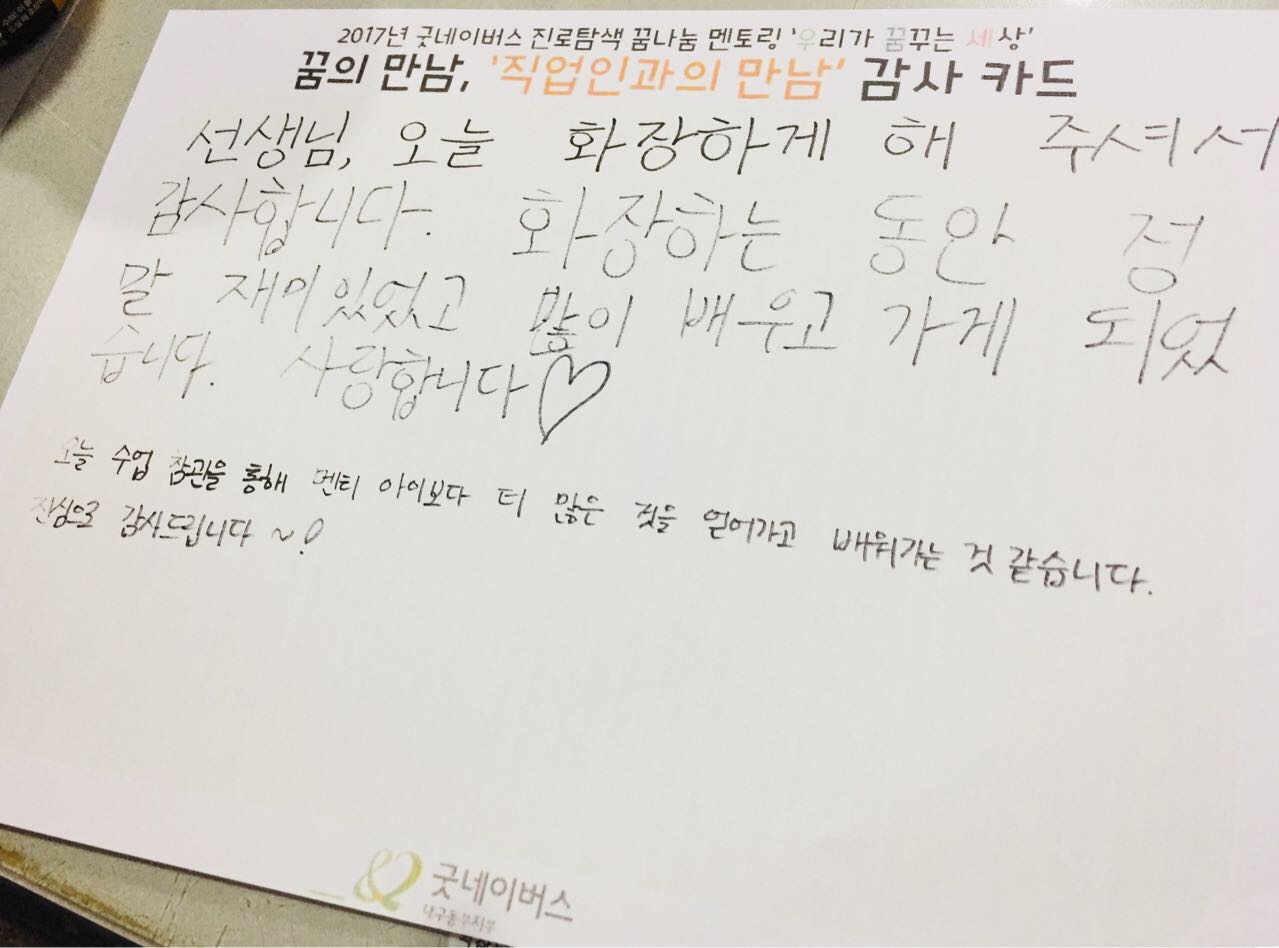 2017년 굿네이버스 진로탐색 꿈나눔 멘토링 '우리가 꿈꾸는 세상'
꿈의 만남, '직업인과의 만남' 감사 카드
선생님, 오늘 화장하게 해 주셔서
감사합니다. 화장하는 동안 정
말 재미있었고 많이 배우고 가게 되었
습니다. 사랑합니다♡
오늘 수업 참관을 통해 멘티 아이보다 더 많은 것을 얻어가고 배워가는 것 같습니다.
진심으로 감사드립니다 ~!
굿네이버스
대구동부지부